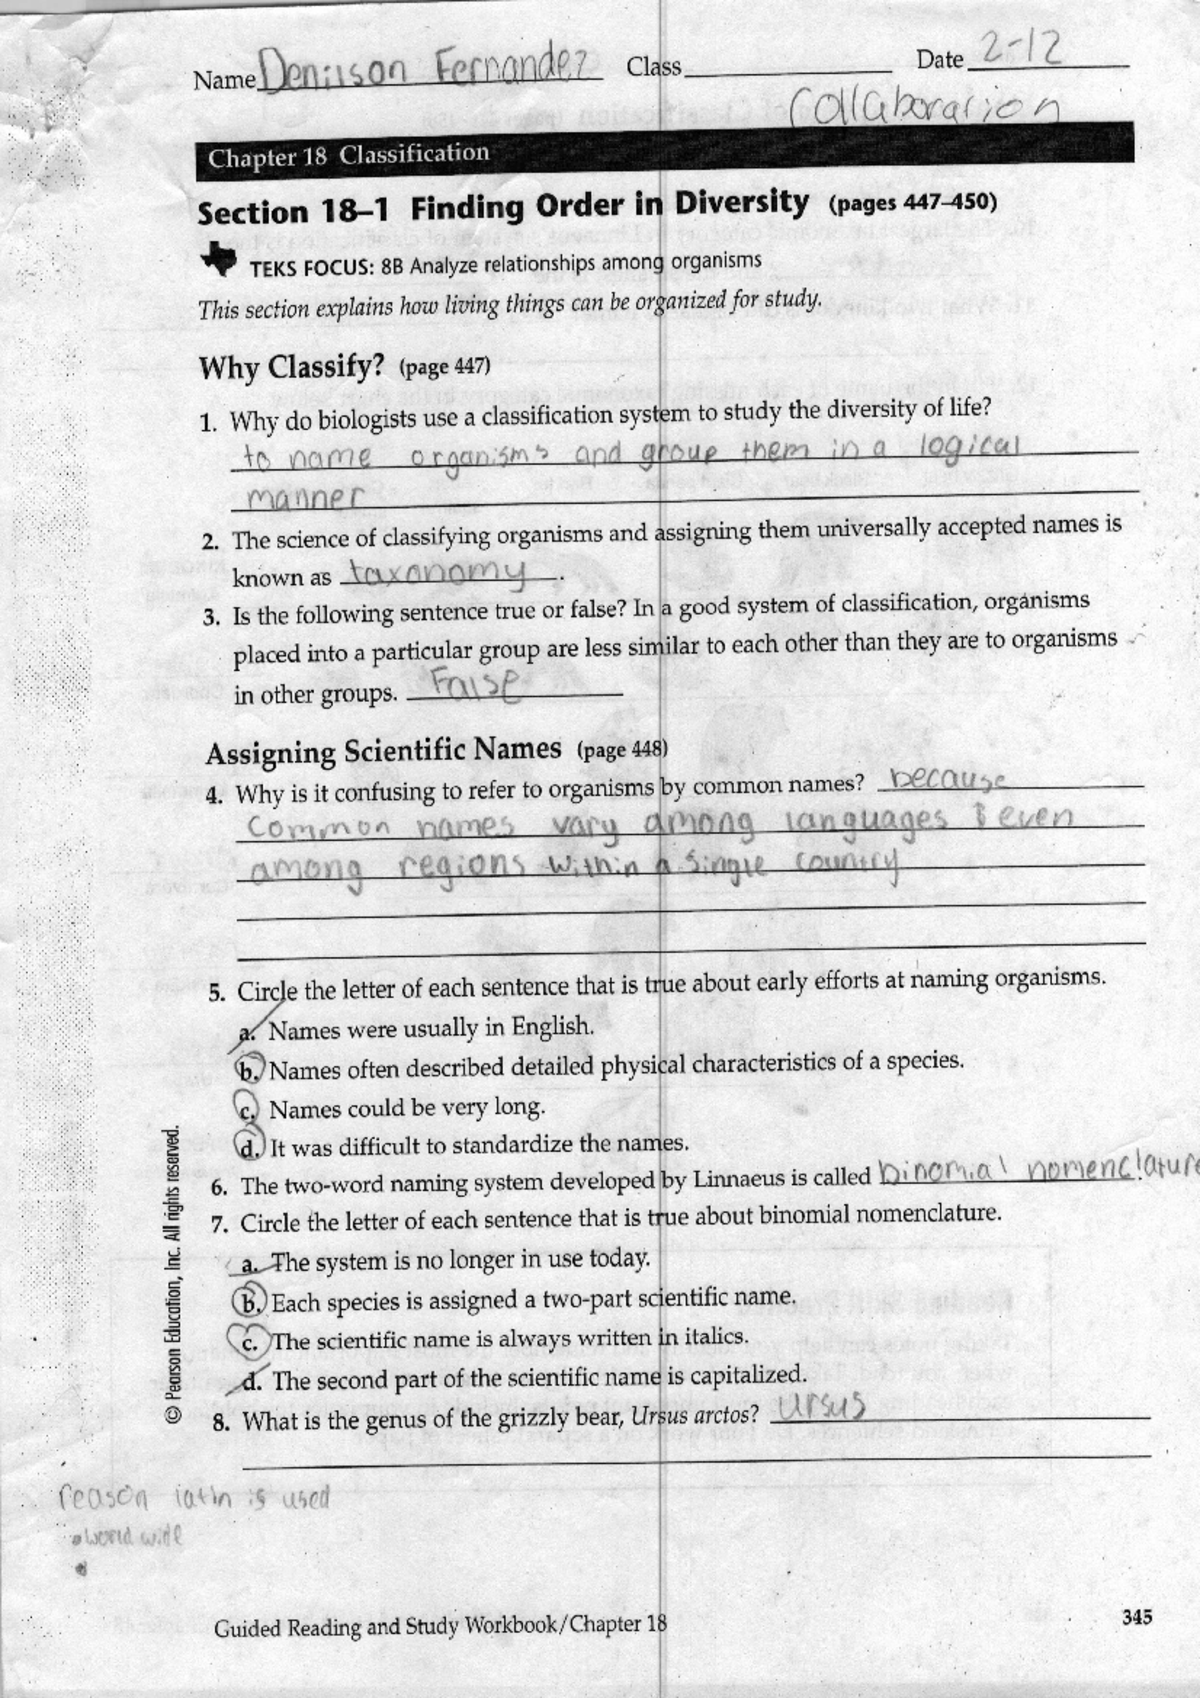 Name Denilson Fernandez Class Date 2-12
Collaborarion
Chapter 18 Classification
Section 18–1 Finding Order in Diversity (pages 447–450)
TEKS FOCUS: 8B Analyze relationships among organisms
This section explains how living things can be organized for study.
Why Classify? (page 447)
1. Why do biologists use a classification system to study the diversity of life?
to name organisms and group them in a logical
manner
2. The science of classifying organisms and assigning them universally accepted names is
known as taxonomy.
3. Is the following sentence true or false? In a good system of classification, organisms
placed into a particular group are less similar to each other than they are to organisms
in other groups. False
Assigning Scientific Names (page 448)
4. Why is it confusing to refer to organisms by common names? because
common names vary among languages & even
among regions within a single country
5. Circle the letter of each sentence that is true about early efforts at naming organisms.
a. Names were usually in English.
b. Names often described detailed physical characteristics of a species.
c. Names could be very long.
d. It was difficult to standardize the names.
6. The two-word naming system developed by Linnaeus is called binomial nomenclature.
7. Circle the letter of each sentence that is true about binomial nomenclature.
a. The system is no longer in use today.
b. Each species is assigned a two-part scientific name.
c. The scientific name is always written in italics.
d. The second part of the scientific name is capitalized.
8. What is the genus of the grizzly bear, Ursus arctos? Ursus
reason latin is used
• world wide
© Pearson Education, Inc. All rights reserved.
Guided Reading and Study Workbook/Chapter 18
345